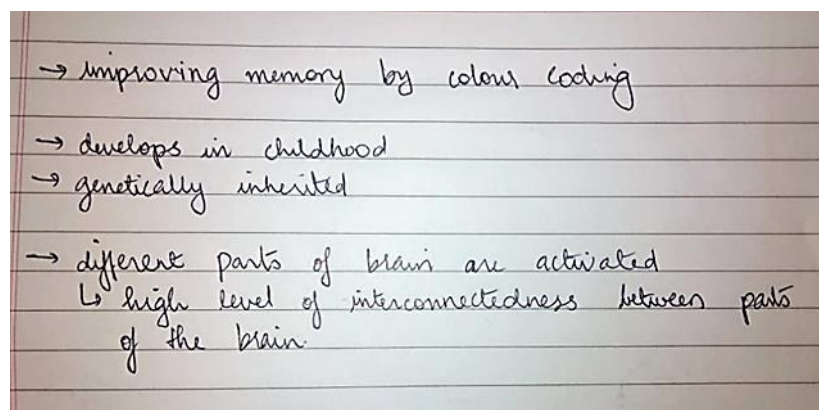 → improving memory by colour coding
→ develops in childhood
→ genetically inherited
→ different parts of brain are activated
↳ high level of interconnectedness between parts
of the brain.